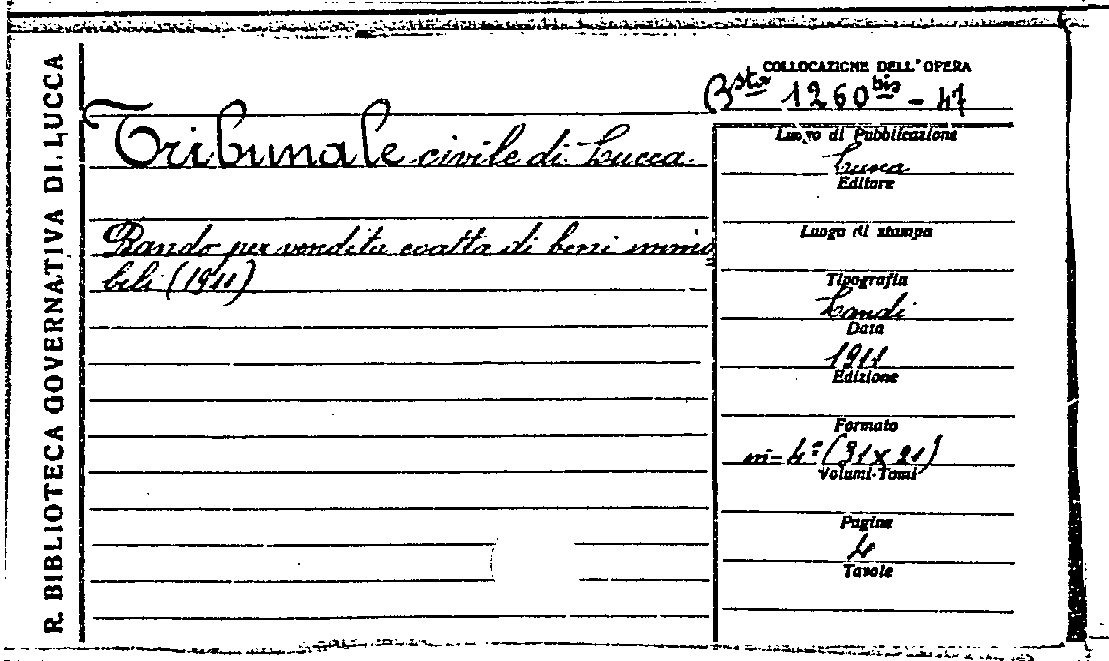 R. BIBLIOTECA GOVERNATIVA DI LUCCA
COLLOCAZIONE DELL'OPERA
Bsta 1260bis - 47
Tribunale civile di Lucca.
Bando per vendita coatta di beni immo
bili (1911)
Luogo di Pubblicazione
Lucca
Editore
Luogo di stampa
Tipografia
Landi
Data
1911
Edizione
Formato
in-4° (31 x 21)
Volumi-Tomi
Pagine
4
Tavole